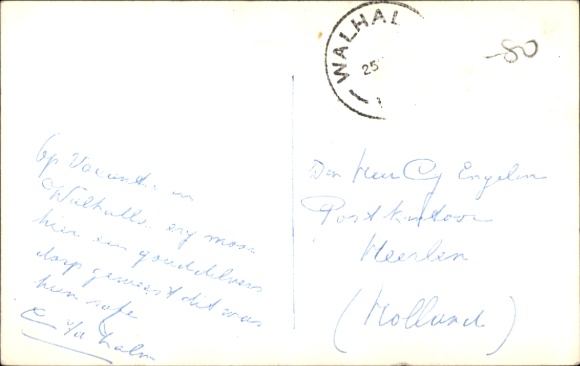 WALHAL
25
-80
Op Vacantie in
Walhalla. erg mooi
hier een gouddelvers
dorp geweest dit was
hun safe
C v/d
Den Heer Engelen
Postkantoor
Heerlen
(Holland)